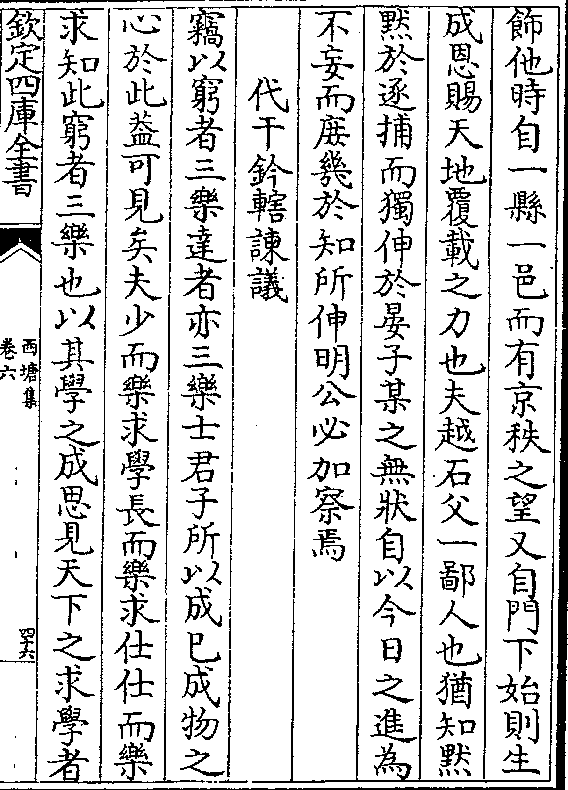 飾他時自一縣一邑而有京秩之望又自門下始則生
成恩賜天地覆載之力也夫越石父一鄙人也猶知黙
黙於逐捕而獨伸於晏子某之無狀自以今日之進為
不妄而庻幾於知所伸明公必加察焉
代干鈐轄諫議
竊以窮者三樂達者亦三樂士君子所以成已成物之
心於此葢可見矣夫少而樂求學長而樂求仕仕而樂
求知此窮者三樂也以其學之成思見天下之求學者
欽定四庫全書
西塘集
卷六
四六